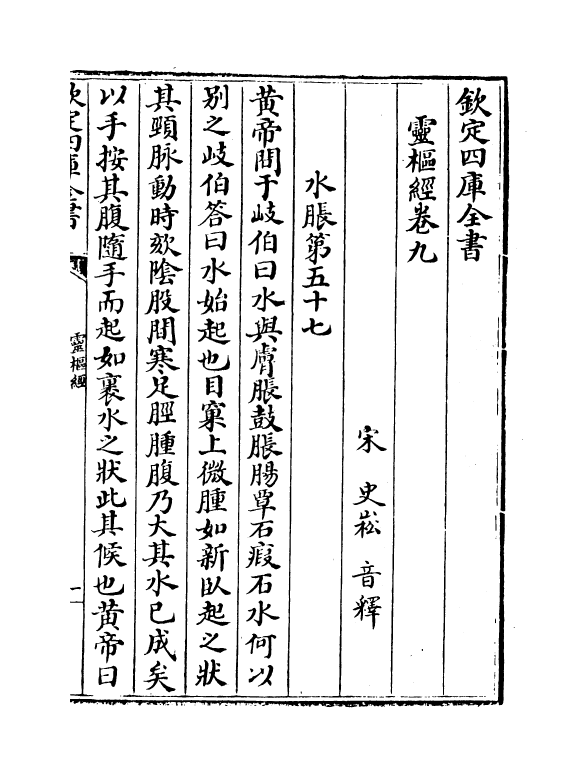 欽定四庫全書
靈樞經卷九
宋 史崧 音釋
水脹第五十七
黄帝問于岐伯曰水與膚脹鼓脹腸覃石瘕石水何以
别之岐伯答曰水始起也目窠上微腫如新卧起之狀
其頸脉動時欬隂股間寒足脛腫腹乃大其水已成矣
以手按其腹隨手而起如裹水之狀此其候也黄帝曰
欽定四庫全書
靈樞經
一